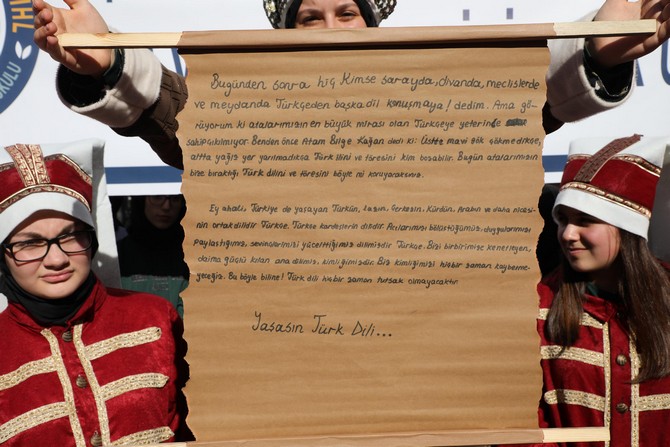 Bugünden sonra hiç Kimse sarayda, divanda, meclislerde
ve meydanda Türkçeden başka dil konuşmaya! dedim. Ama gö-
rüyorum ki atalarımızın en büyük mirası olan Türkçeye yeterince
sahip çıkılmıyor. Benden önce Atam Bilge Kağan dedi ki: Üstte mavi gök çökmedikçe,
altta yağız yer yarılmadıkça Türk ilini ve töresini kim bozabilir. Bugün atalarımızın
bize bıraktığı Türk dilini ve töresini böyle mi koruyacaksınız.
Ey ahali, Türkiye de yaşayan Türkün, Lazın, Çerkezin, Kürdün, Arabın ve daha nicesi-
nin ortak dilidir Türkçe. Türkçe kardeşlerin dilidir. Acılarımızı bölüştüğümüz, duygularımızı
paylaştığımız, sevinçlerimizi yücelttiğimiz dilimizdir Türkçe. Bizi birbirimize kenetleyen,
daima güçlü kılan ana dilimiz, kimliğimizdir. Biz kimliğimizi hiçbir zaman kaybetme-
yeceğiz. Bu böyle biline! Türk dili hiçbir zaman tutsak olmayacaktır.
Yaşasın Türk Dili...